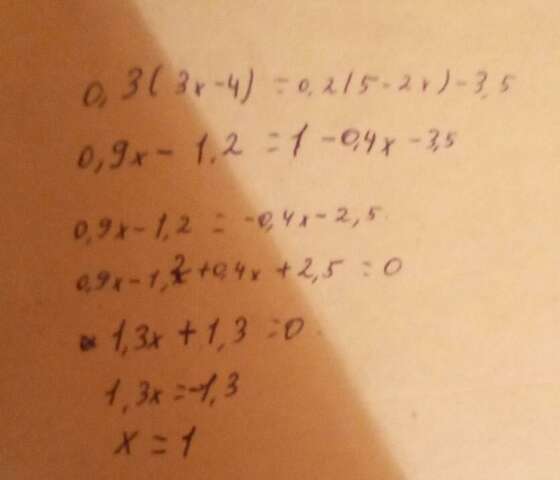 0,3(3x-4) = 0,2(5-2x)-3,5
0,9x - 1,2 = 1 - 0,4x - 3,5
0,9x - 1,2 = -0,4x - 2,5
0,9x - 1,2 + 0,4x + 2,5 = 0
1,3x + 1,3 = 0
1,3x = -1,3
x = 1